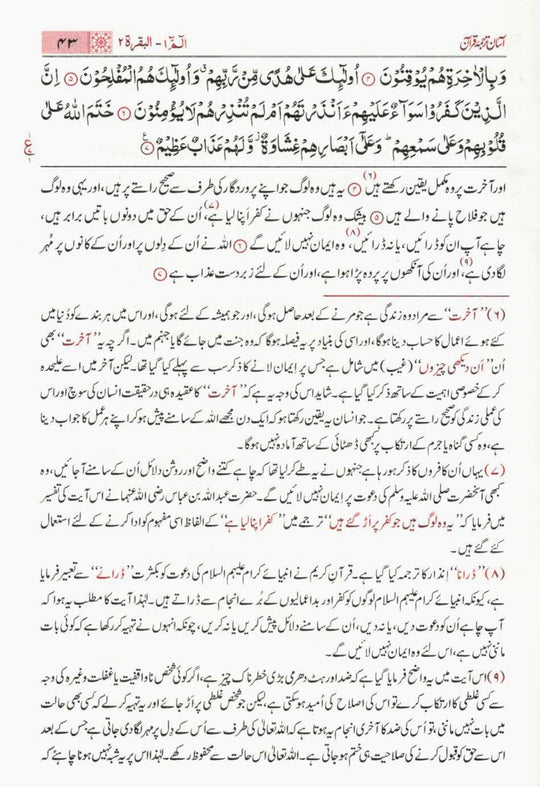 آسان ترجمۂ قرآن الٓمّٓ ۱- البقرۃ ۲ ۴۳
وَبِالْاٰخِرَةِ هُمْ يُوْقِنُوْنَ ۴ اُولٰٓئِكَ عَلٰى هُدًى مِّنْ رَّبِّهِمْ ۙ وَاُولٰٓئِكَ هُمُ الْمُفْلِحُوْنَ ۵ اِنَّ
الَّذِيْنَ كَفَرُوْا سَوَآءٌ عَلَيْهِمْ ءَاَنْذَرْتَهُمْ اَمْ لَمْ تُنْذِرْهُمْ لَا يُؤْمِنُوْنَ ۶ خَتَمَ اللّٰهُ عَلٰى
قُلُوْبِهِمْ وَعَلٰى سَمْعِهِمْ ؕ وَعَلٰٓى اَبْصَارِهِمْ غِشَاوَةٌ ۫ وَّلَهُمْ عَذَابٌ عَظِيْمٌ ۷ ع
اور آخرت پر وہ مکمل یقین رکھتے ہیں (۶) ۴ یہ ہیں وہ لوگ جو اپنے پروردگار کی طرف سے صحیح راستے پر ہیں، اور یہی وہ لوگ
ہیں جو فلاح پانے والے ہیں ۵ بیشک وہ لوگ جنہوں نے کفر اپنا لیا ہے (۷)، اُن کے حق میں دونوں باتیں برابر ہیں،
چاہے آپ ان کو ڈرائیں، یا نہ ڈرائیں (۸)، وہ ایمان نہیں لائیں گے ۶ اللہ نے اُن کے دِلوں پر اور اُن کے کانوں پر مُہر
لگادی ہے (۹)، اور اُن کی آنکھوں پر پردہ پڑا ہوا ہے، اور اُن کے لئے زبردست عذاب ہے ۷
(۶) ’’آخرت‘‘ سے مراد وہ زندگی ہے جو مرنے کے بعد حاصل ہوگی، اور جو ہمیشہ کے لئے ہوگی، اور اس میں ہر بندے کو دُنیا میں
کئے ہوئے اعمال کا حساب دینا ہوگا، اور اسی کی بنیاد پر یہ فیصلہ ہوگا کہ وہ جنت میں جائے گا یا جہنم میں۔ اگرچہ یہ ’’آخرت‘‘ بھی
اُن ’’اَن دیکھی چیزوں‘‘ (غیب) میں شامل ہے جس پر ایمان لانے کا ذکر سب سے پہلے کیا گیا تھا۔ لیکن آخر میں اسے علیحدہ
کرکے خصوصی اہمیت کے ساتھ ذکر کیا گیا ہے۔ شاید اس کی وجہ یہ ہے کہ ’’آخرت‘‘ کا عقیدہ ہی درحقیقت انسان کی سوچ اور اس
کی عملی زندگی کو صحیح راستے پر رکھتا ہے۔ جو انسان یہ یقین رکھتا ہو کہ ایک دن مجھے اللہ کے سامنے پیش ہوکر اپنے ہر عمل کا جواب دینا
ہے، وہ کسی گناہ یا جرم کے ارتکاب پر کبھی ڈھٹائی کے ساتھ آمادہ نہیں ہوگا۔
(۷) یہاں اُن کافروں کا ذکر ہورہا ہے جنہوں نے یہ طے کرلیا تھا کہ چاہے کتنے واضح اور روشن دلائل اُن کے سامنے آجائیں، وہ
کبھی آنحضرت صلی اللہ علیہ وسلم کی دعوت پر اِیمان نہیں لائیں گے۔ حضرت عبداللہ بن عباس رضی اللہ عنہما نے اس آیت کی تفسیر
میں فرمایا کہ ’’یہ وہ لوگ ہیں جو کفر پر اَڑ گئے ہیں‘‘ ترجمے میں ’’کفر اپنا لیا ہے‘‘ کے الفاظ اسی مفہوم کو ادا کرنے کے لئے استعمال
کئے گئے ہیں۔
(۸) ’’ڈرانا‘‘ اِنذار کا ترجمہ کیا گیا ہے۔ قرآنِ کریم نے انبیائے کرام علیہم السلام کی دعوت کو بکثرت ’’ڈرانے‘‘ سے تعبیر فرمایا
ہے، کیونکہ انبیائے کرام علیہم السلام لوگوں کو کفر اور بداعمالیوں کے بُرے انجام سے ڈراتے ہیں۔ لہٰذا آیت کا مطلب یہ ہوا کہ
آپ چاہے اُن کو دعوت دیں، یا نہ دیں، اُن کے سامنے دلائل پیش کریں یا نہ کریں، چونکہ انہوں نے تہیہ کر رکھا ہے کہ کوئی بات
ماننی نہیں ہے، اس لئے وہ ایمان نہیں لائیں گے۔
(۹) اس آیت میں یہ واضح فرمایا گیا ہے کہ ضد اور ہٹ دھرمی بڑی خطرناک چیز ہے، اگر کوئی شخص ناواقفیت یا غفلت وغیرہ کی وجہ
سے کسی غلطی کا ارتکاب کرے تو اس کی اصلاح کی اُمید ہوسکتی ہے، لیکن جو شخص غلطی پر اَڑ جائے اور یہ تہیہ کرلے کہ کسی بھی حالت
میں بات نہیں ماننی، تو اُس کی ضد کا آخری انجام یہ ہوتا ہے کہ اللہ تعالیٰ کی طرف سے اُس کے دِل پر مہر لگادی جاتی ہے جس کے بعد
اس سے حق کو قبول کرنے کی صلاحیت ہی ختم ہوجاتی ہے۔ اللہ تعالیٰ اس حالت سے محفوظ رکھے۔ لہٰذا اس پر یہ شبہ نہیں ہونا چاہئے کہ